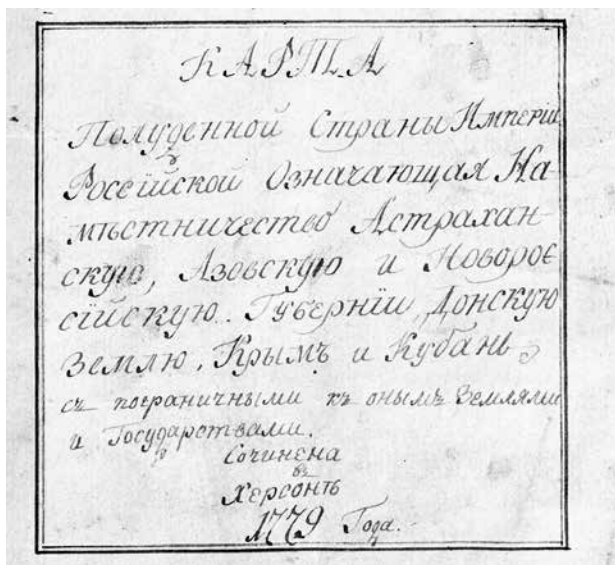 КАРТА
Полуденной Страны Имперiи
Россiйской Означающая На-
мѣстничество Астрахан-
скую, Азовскую и Новорос
сiйскую Губернiи, Донскую
Землю, Крымъ и Кубань,
съ пограничными къ онымъ Землями
и Государствами.
Сочинена
въ
Херсонѣ
1779 Года.